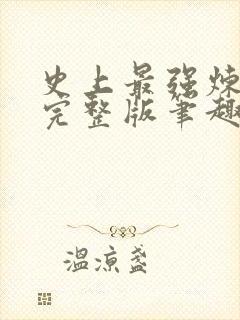 史上最强炼
完整版笔趣
温凉盏